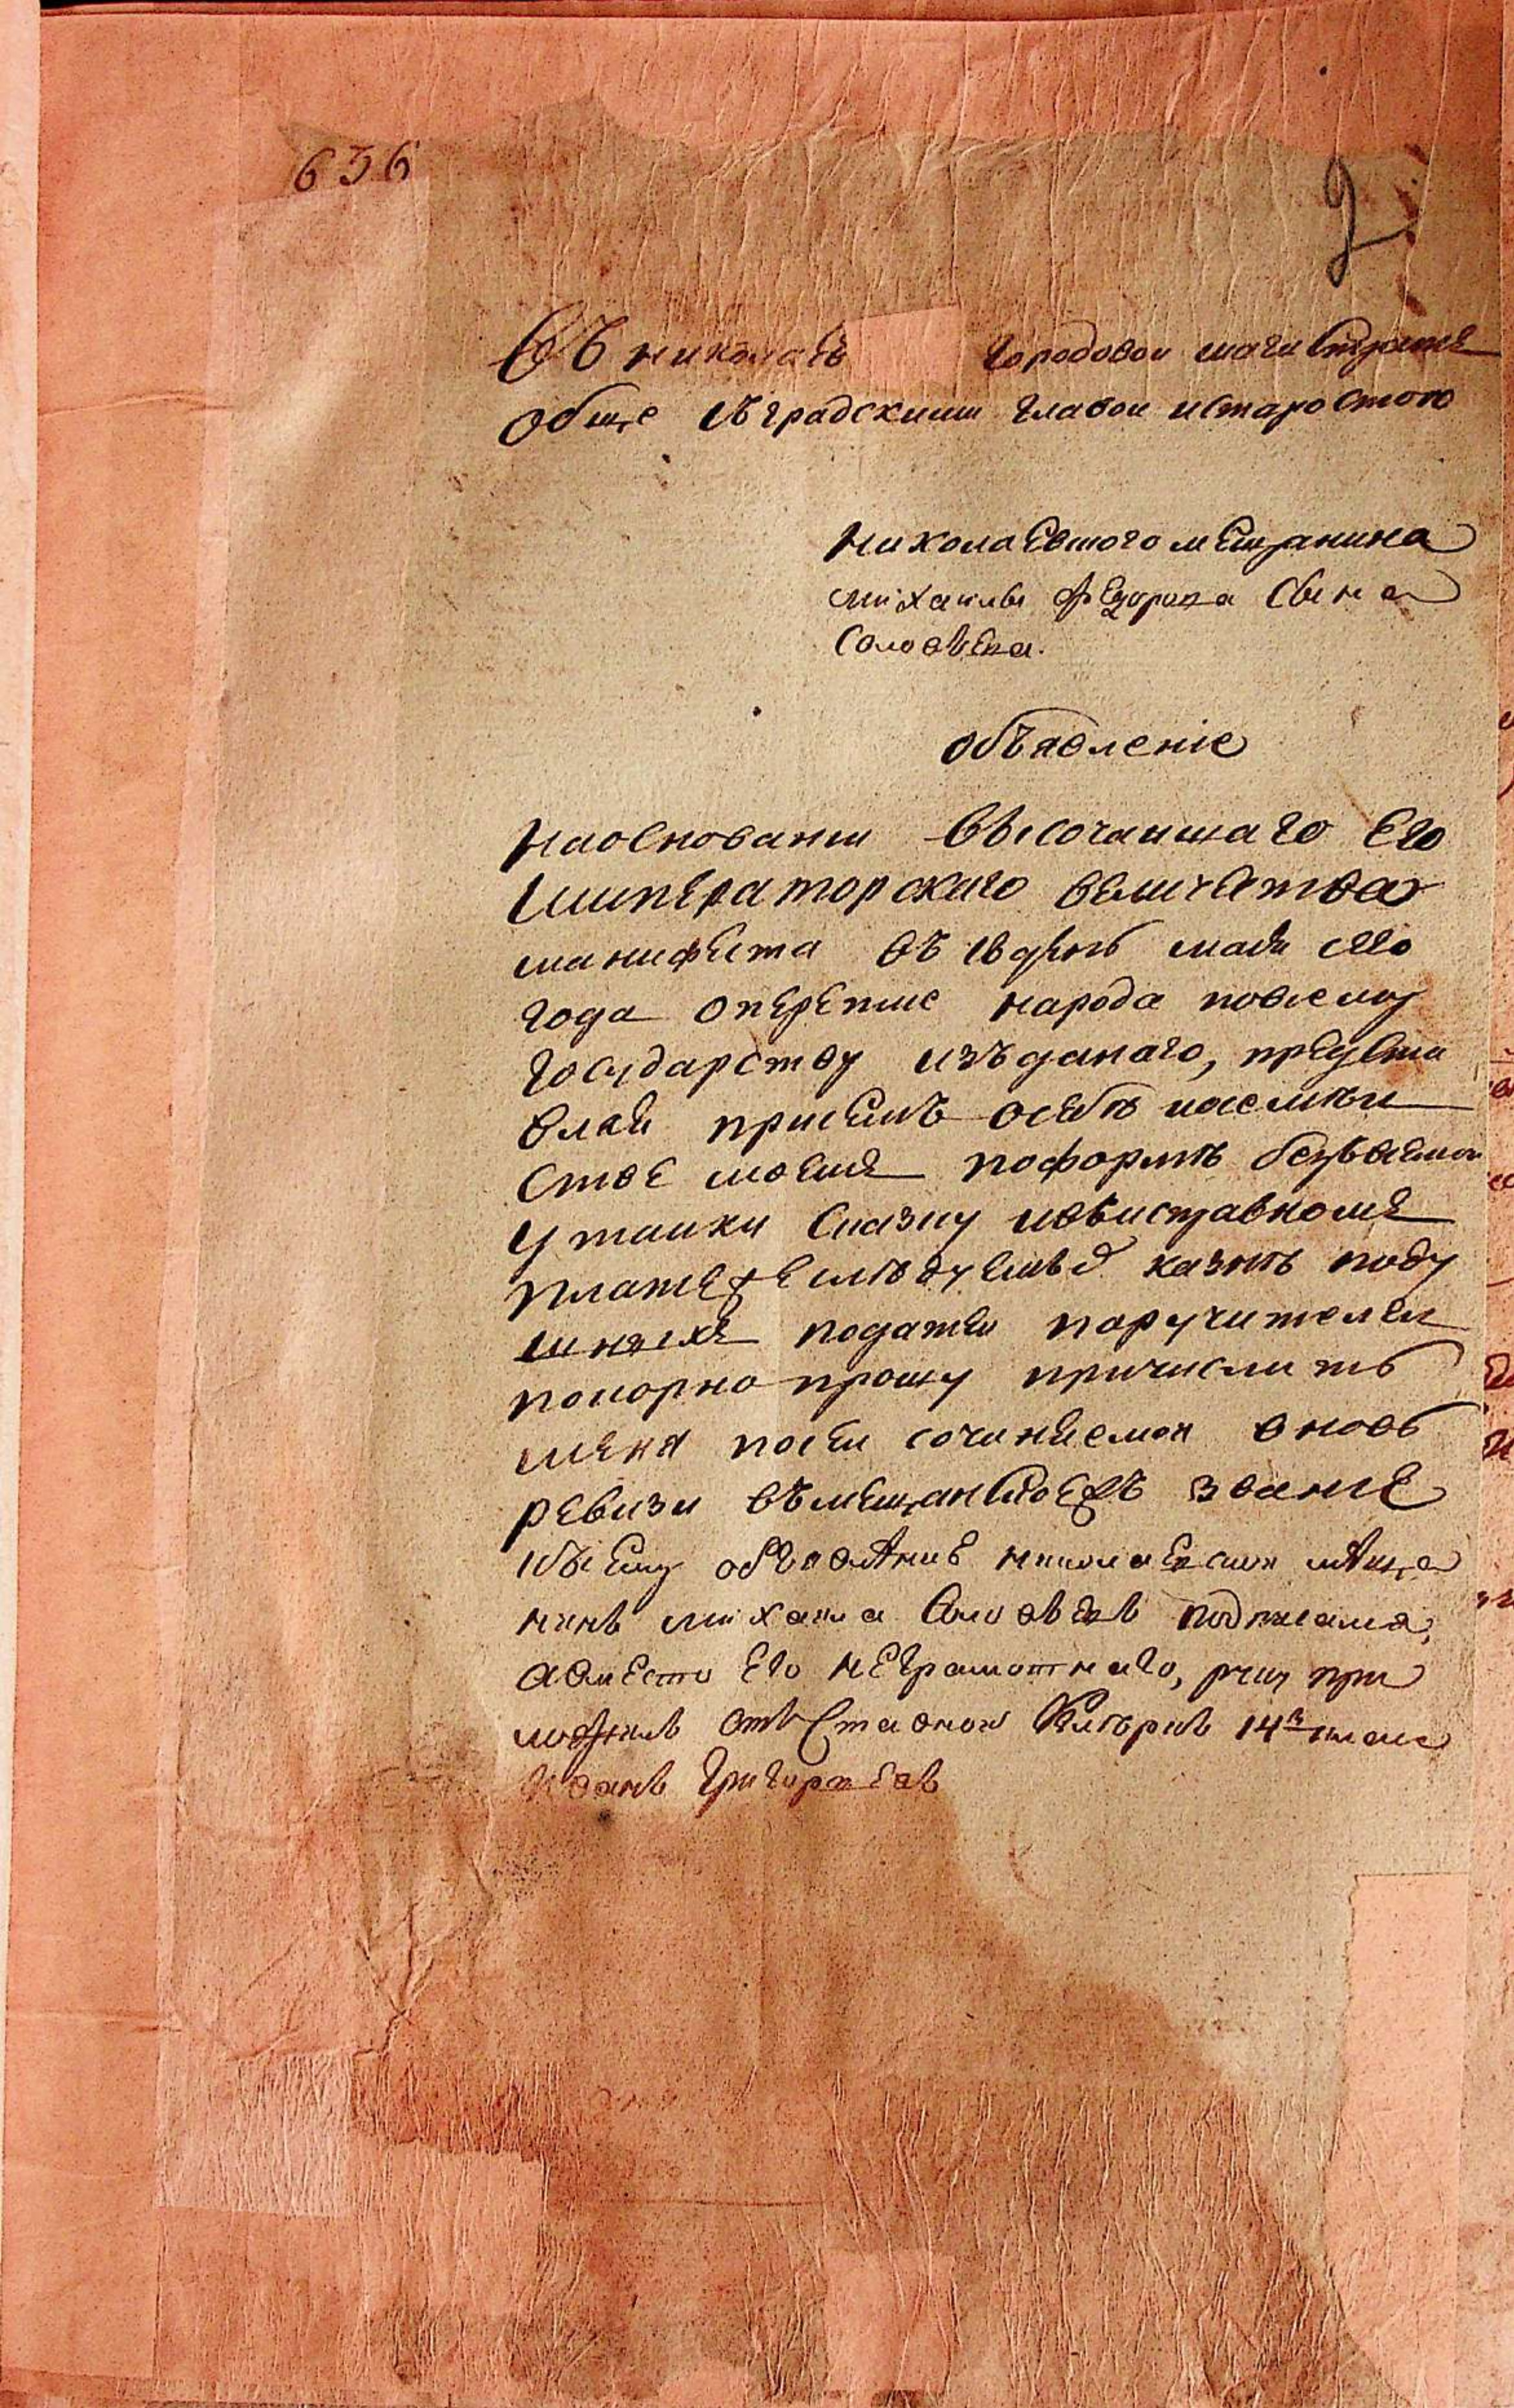 636
2
Въ николаев городовои магистратъ
обще съ градскимъ главои истаростою
николаевского мещанина
михаилы федорова сына
Соловьева.
объявленіе
на основаніи высочаишаго Его
Императорскаго величества
манифеста въ 18 день маия сего
года о переписи народа повсему
государству изъданаго, предста
вляя присемъ осебѣ исемѣи
стве моемъ поформѣ безвсякои
утаики сказку иобиставкомъ
платеже следуемых казнѣ поду
шныхъ податеи поручителеи
покорно прошу причислить
меня посеи сочиняемои вновь
ревизи въмещанское званіе
Къ сему объявление николаевскии меща
нинъ михаила Соловьев подписался,
авместо Его неграмотнаго, руку при
ложилъ отъставнои 14й класа
Иванъ Григорьевъ